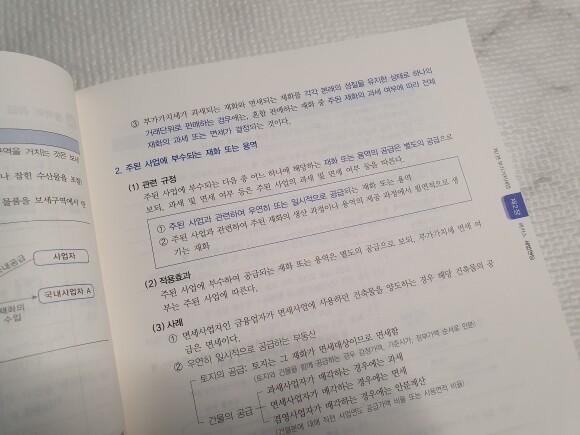 역을 거치는 것은 보세
나 잡힌 수산물을 포함
물품을 보세구역에서 반
내공급
사업자
국내사업자 A
재화의
수입
③ 부가가치세가 과세되는 재화와 면세되는 재화를 각각 본래의 성질을 유지한 상태로 하나의
거래단위로 판매하는 경우에는, 혼합 판매하는 재화 중 주된 재화의 과세 여부에 따라 전체
재화의 과세 또는 면세가 결정되는 것이다.
2. 주된 사업에 부수되는 재화 또는 용역
(1) 관련 규정
주된 사업에 부수되는 다음 중 어느 하나에 해당하는 재화 또는 용역의 공급은 별도의 공급으로
보되, 과세 및 면세 여부 등은 주된 사업의 과세 및 면세 여부 등을 따른다.
① 주된 사업과 관련하여 우연히 또는 일시적으로 공급되는 재화 또는 용역
② 주된 사업과 관련하여 주된 재화의 생산 과정이나 용역의 제공 과정에서 필연적으로 생
기는 재화
(2) 적용효과
주된 사업에 부수하여 공급되는 재화 또는 용역은 별도의 공급으로 보되, 부가가치세 면세 여
부는 주된 사업에 따른다.
(3) 사례
① 면세사업자인 금융업자가 면세사업에 사용하던 건축물을 양도하는 경우 해당 건축물의 공
급은 면세이다.
② 우연히 일시적으로 공급하는 부동산
토지의 공급: 토지는 그 재화가 면세대상이므로 면세함
(토지와 건물을 함께 공급하는 경우 감정가액, 기준시가, 장부가액 순서로 안분)
건물의 공급
과세사업자가 매각하는 경우에는 과세
면세사업자가 매각하는 경우에는 면세
겸영사업자가 매각하는 경우에는 안분계산
(건물분에 대해 직전 사업연도 공급가액 비율 또는 사용면적 비율)
제2장